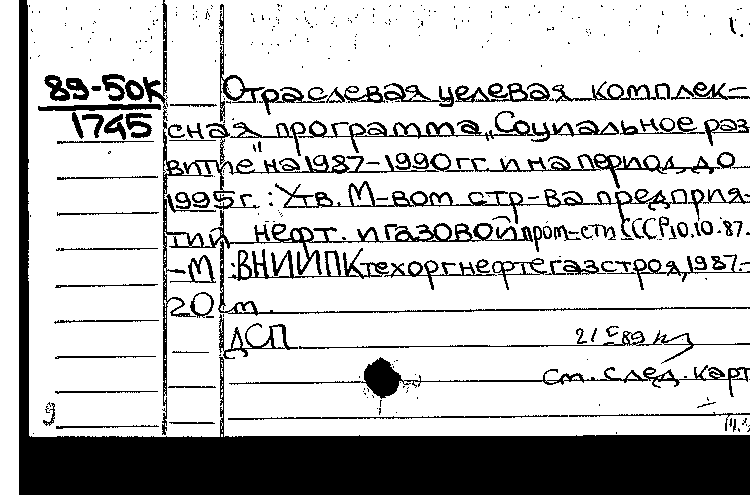 89-50К Отраслевая целевая комплек-
1745 сная программа „Социальное раз
витие" на 1987-1990 гг. и на период до
1995 г.: Утв. М-вом стр-ва предприя-
тий нефт. и газовой пром-сти СССР 10.10.87.
-М.: ВНИИПКтехоргнефтегазстроя, 1987.-
20 см.
ДСП
см. след. карт
9